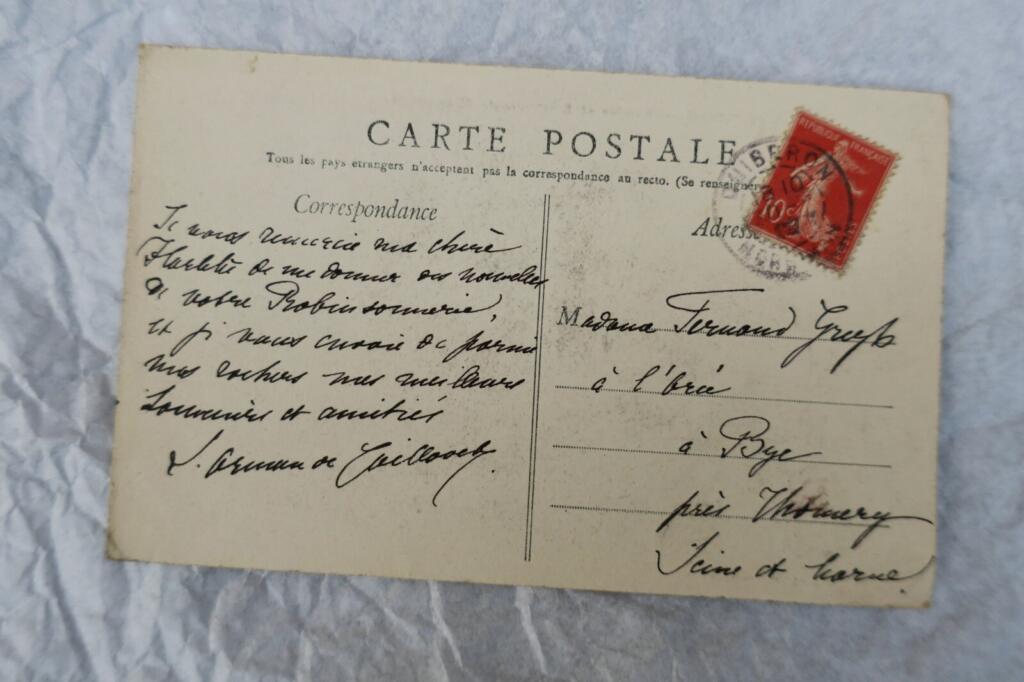 CARTE POSTALE
Tous les pays étrangers n'acceptent pas la correspondance au recto. (Se renseigner
Correspondance
Je vous remercie ma chère
de me donner des nouvelles
de votre Robinsonnerie,
et je vous envoie de parmi
mes rochers mes meilleurs
Souvenirs et amitiés
L. Arman de Caillavet
Adresse
Madame Fernand Gregh
à l'
à By
près Thomery
Seine et Marne
REPUBLIQUE FRANÇAISE
10c
QUIBERON
MORB